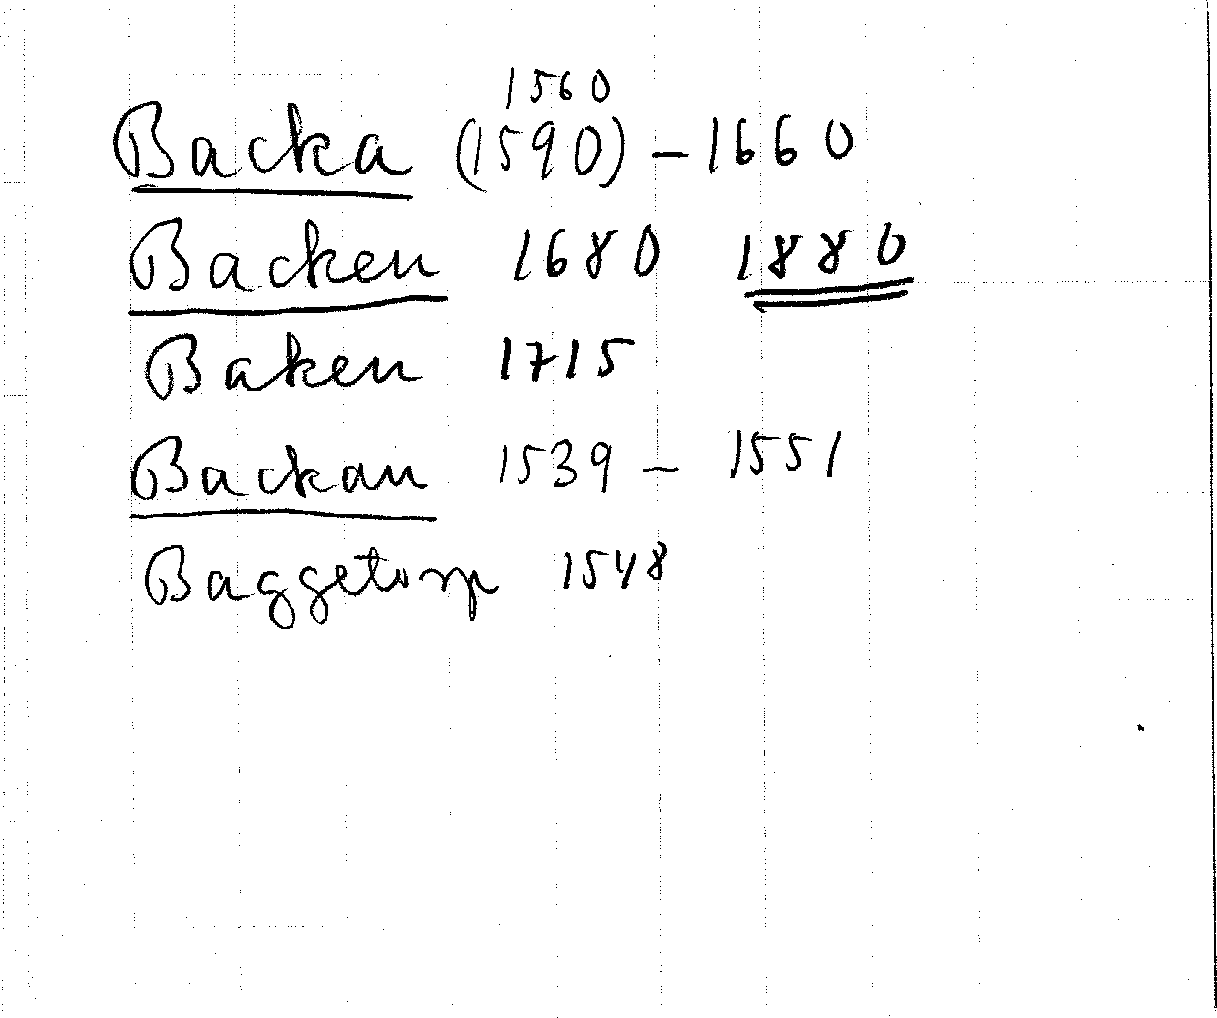 1560
Backa (1590) – 1660
Backen 1680 1880
Baken 1715
Backan 1539 – 1551
Baggetorp 1548